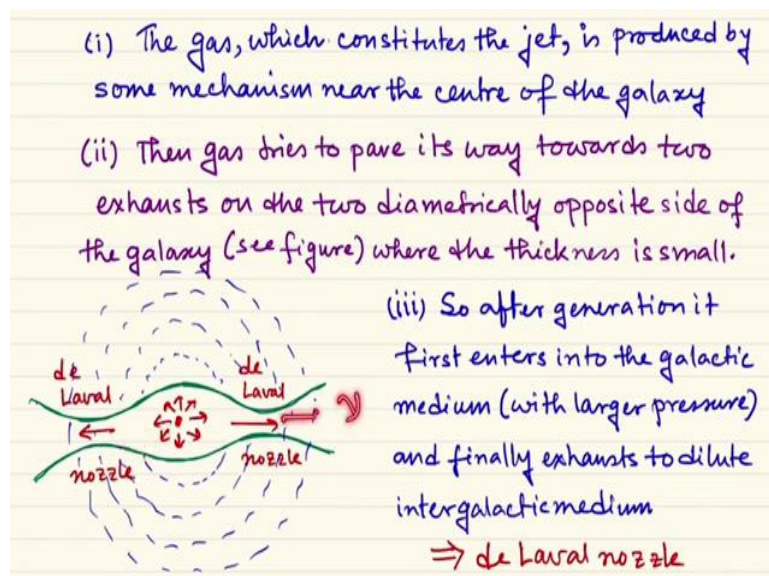 (i) The gas, which constitutes the jet, is produced by
some mechanism near the centre of the galaxy
(ii) Then gas tries to pave its way towards two
exhausts on the two diametrically opposite side of
the galaxy (see figure) where the thickness is small.
(iii) So after generation it
first enters into the galactic
medium (with larger pressure)
and finally exhausts to dilute
intergalactic medium
⇒ de Laval nozzle
de
Laval
nozzle
de
Laval
nozzle